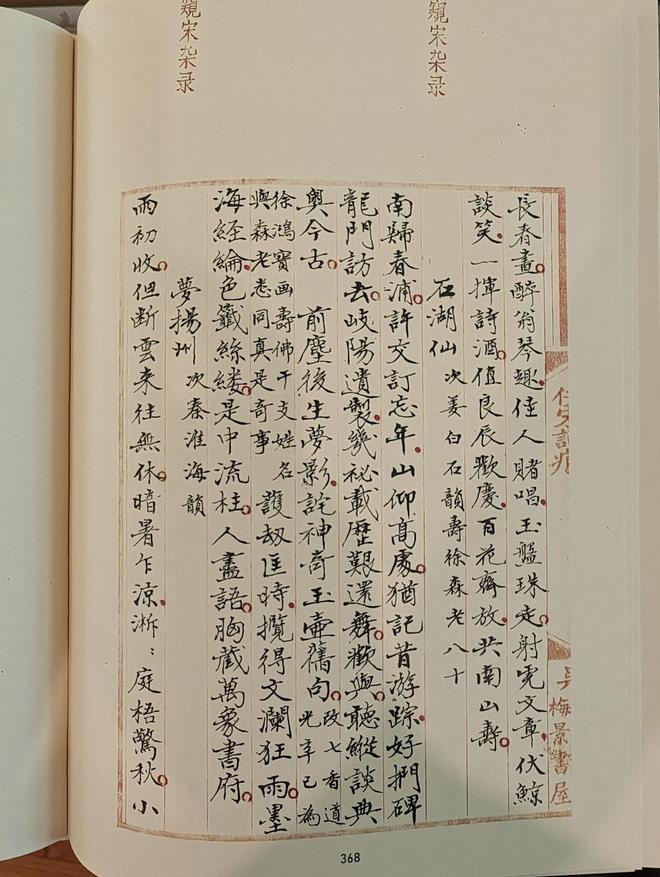 窺宋杂录
窺宋杂录
長春畫醉翁琴趣佳人賭唱玉盤珠走射虎文章伏鯨
談笑一揮詩酒值良辰歡慶百花齊放共南山壽
石湖仙 次姜白石韻壽徐森老八十
南歸春浦許交訂忘年山仰高處猶記昔游踪好捫碑
龍門訪去岐陽遺製幾祕載歷艱還舞歡與聽縱談典
奧今古 前塵後生夢影詫神奇玉壺舊句 改七香道
光辛巳為
徐鴻寶画壽佛干支姓名
與森老悉同真是奇事
護劫匡時攬得文瀾狂雨墨
海經綸色籤絲縷是中流柱人盡語胸藏萬象書府
夢揚州 次秦淮海韻
雨初收但斷雲來往無休暗暑乍涼淅〻庭梧驚秋小
佞宋詞痕
吳
梅景書屋
368